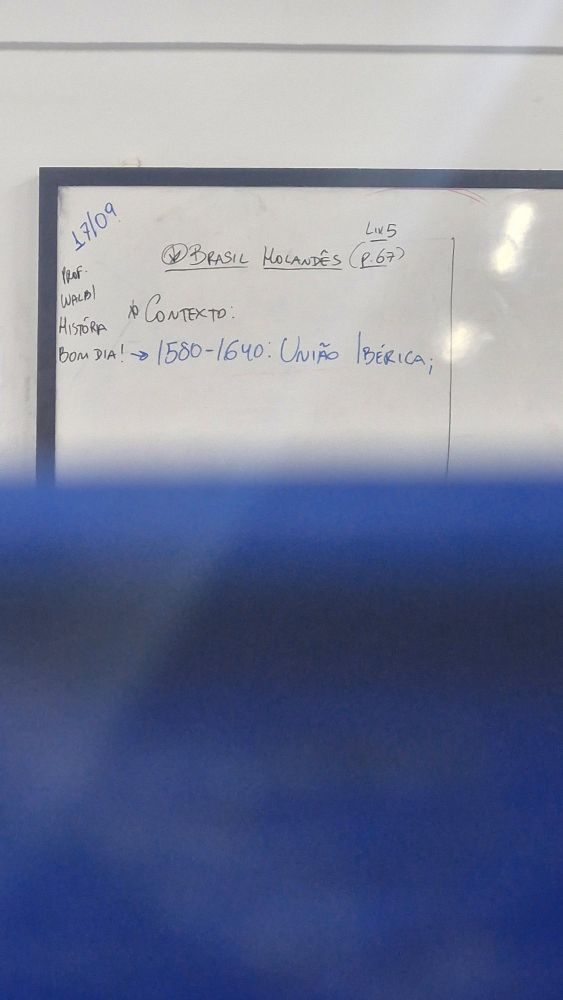 17/09
Liv 5
Brasil Holandês (p.67)
Prof.
Walbi
História
Bom dia!
Contexto:
→ 1580-1640: União Ibérica;